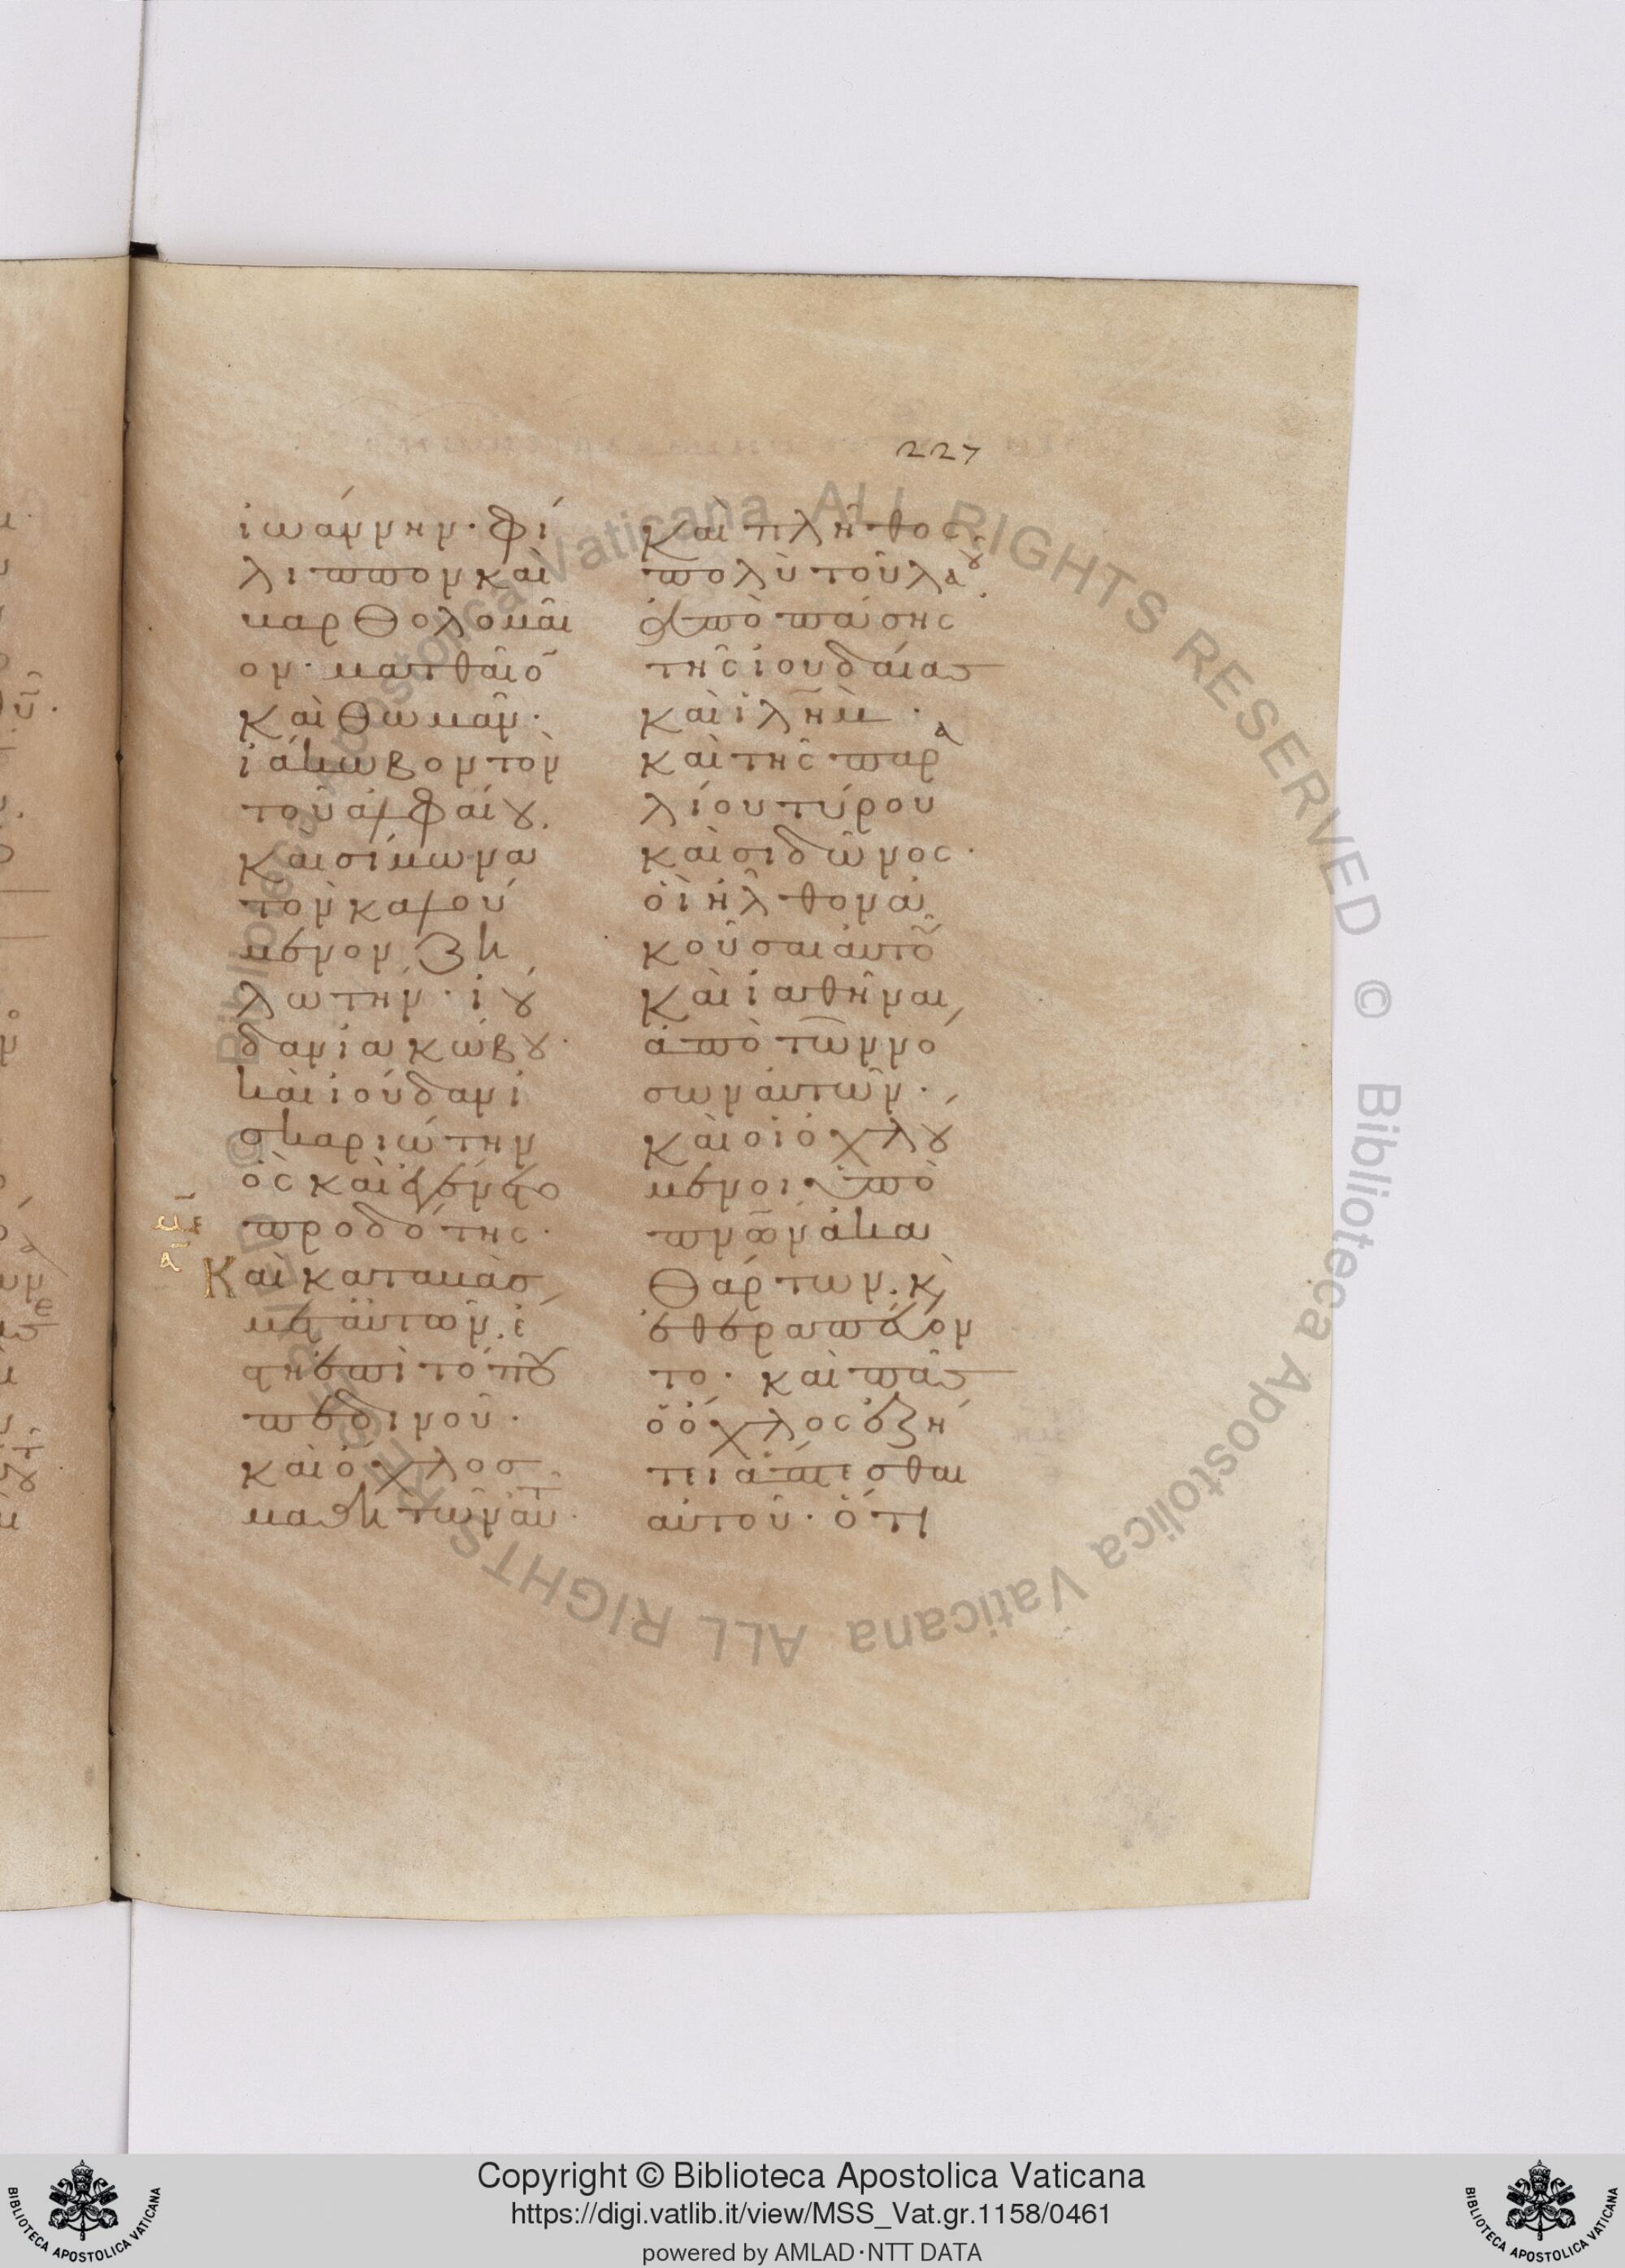 227
ἰωάννην· φί
λιππον καὶ
βαρθολομαῖ
ον· ματθαῖο̅
καὶ θωμᾶν·
ἰάκωβον τὸν
τοῦ ἀλφαίου.
καὶ σίμωνα
τὸν καλού
μενον ζη
λωτήν· ἰού
δαν ἰακώβου·
καὶ ἰούδαν ἰ
σκαριώτην
ὃς καὶ ἐγένετο
προδότης·
Καὶ καταβὰσ
μετ' αὐτῶν, ἔ
στη ἐπὶ τόπου
πεδινοῦ·
καὶ ὄχλοσ
μαθητῶν αὐτ·
καὶ πλῆθος
πολὺ τοῦ λαοῦ
ἀπὸ πάσης
τῆς ἰουδαίασ
καὶ ιλη̅μ·
καὶ τῆς παρα
λίου τύρου
καὶ σιδῶνος·
οἳ ἦλθον ἀ
κοῦσαι αὐτοῦ
καὶ ἰαθῆναι
ἀπὸ τῶν νό
σων αὐτῶν·
καὶ οἱ ὀχλού
μενοι ὑπὸ
πνῶν ἀκα
θάρτων· κ̀
ἐθεραπεύον
το· καὶ πᾶσ
ὁ ὄχλος ἐζή
τει ἅπτεσθαι
αὐτοῦ· ὅτι
Copyright © Biblioteca Apostolica Vaticana
https://digi.vatlib.it/view/MSS_Vat.gr.1158/0461
powered by AMLAD·NTT DATA
BIBLIOTECA APOSTOLICA VATICANA
BIBLIOTECA APOSTOLICA VATICANA
© Biblioteca Apostolica Vaticana ALL RIGHTS RESERVED © Biblioteca Apostolica Vaticana ALL RIGHTS RESERVED